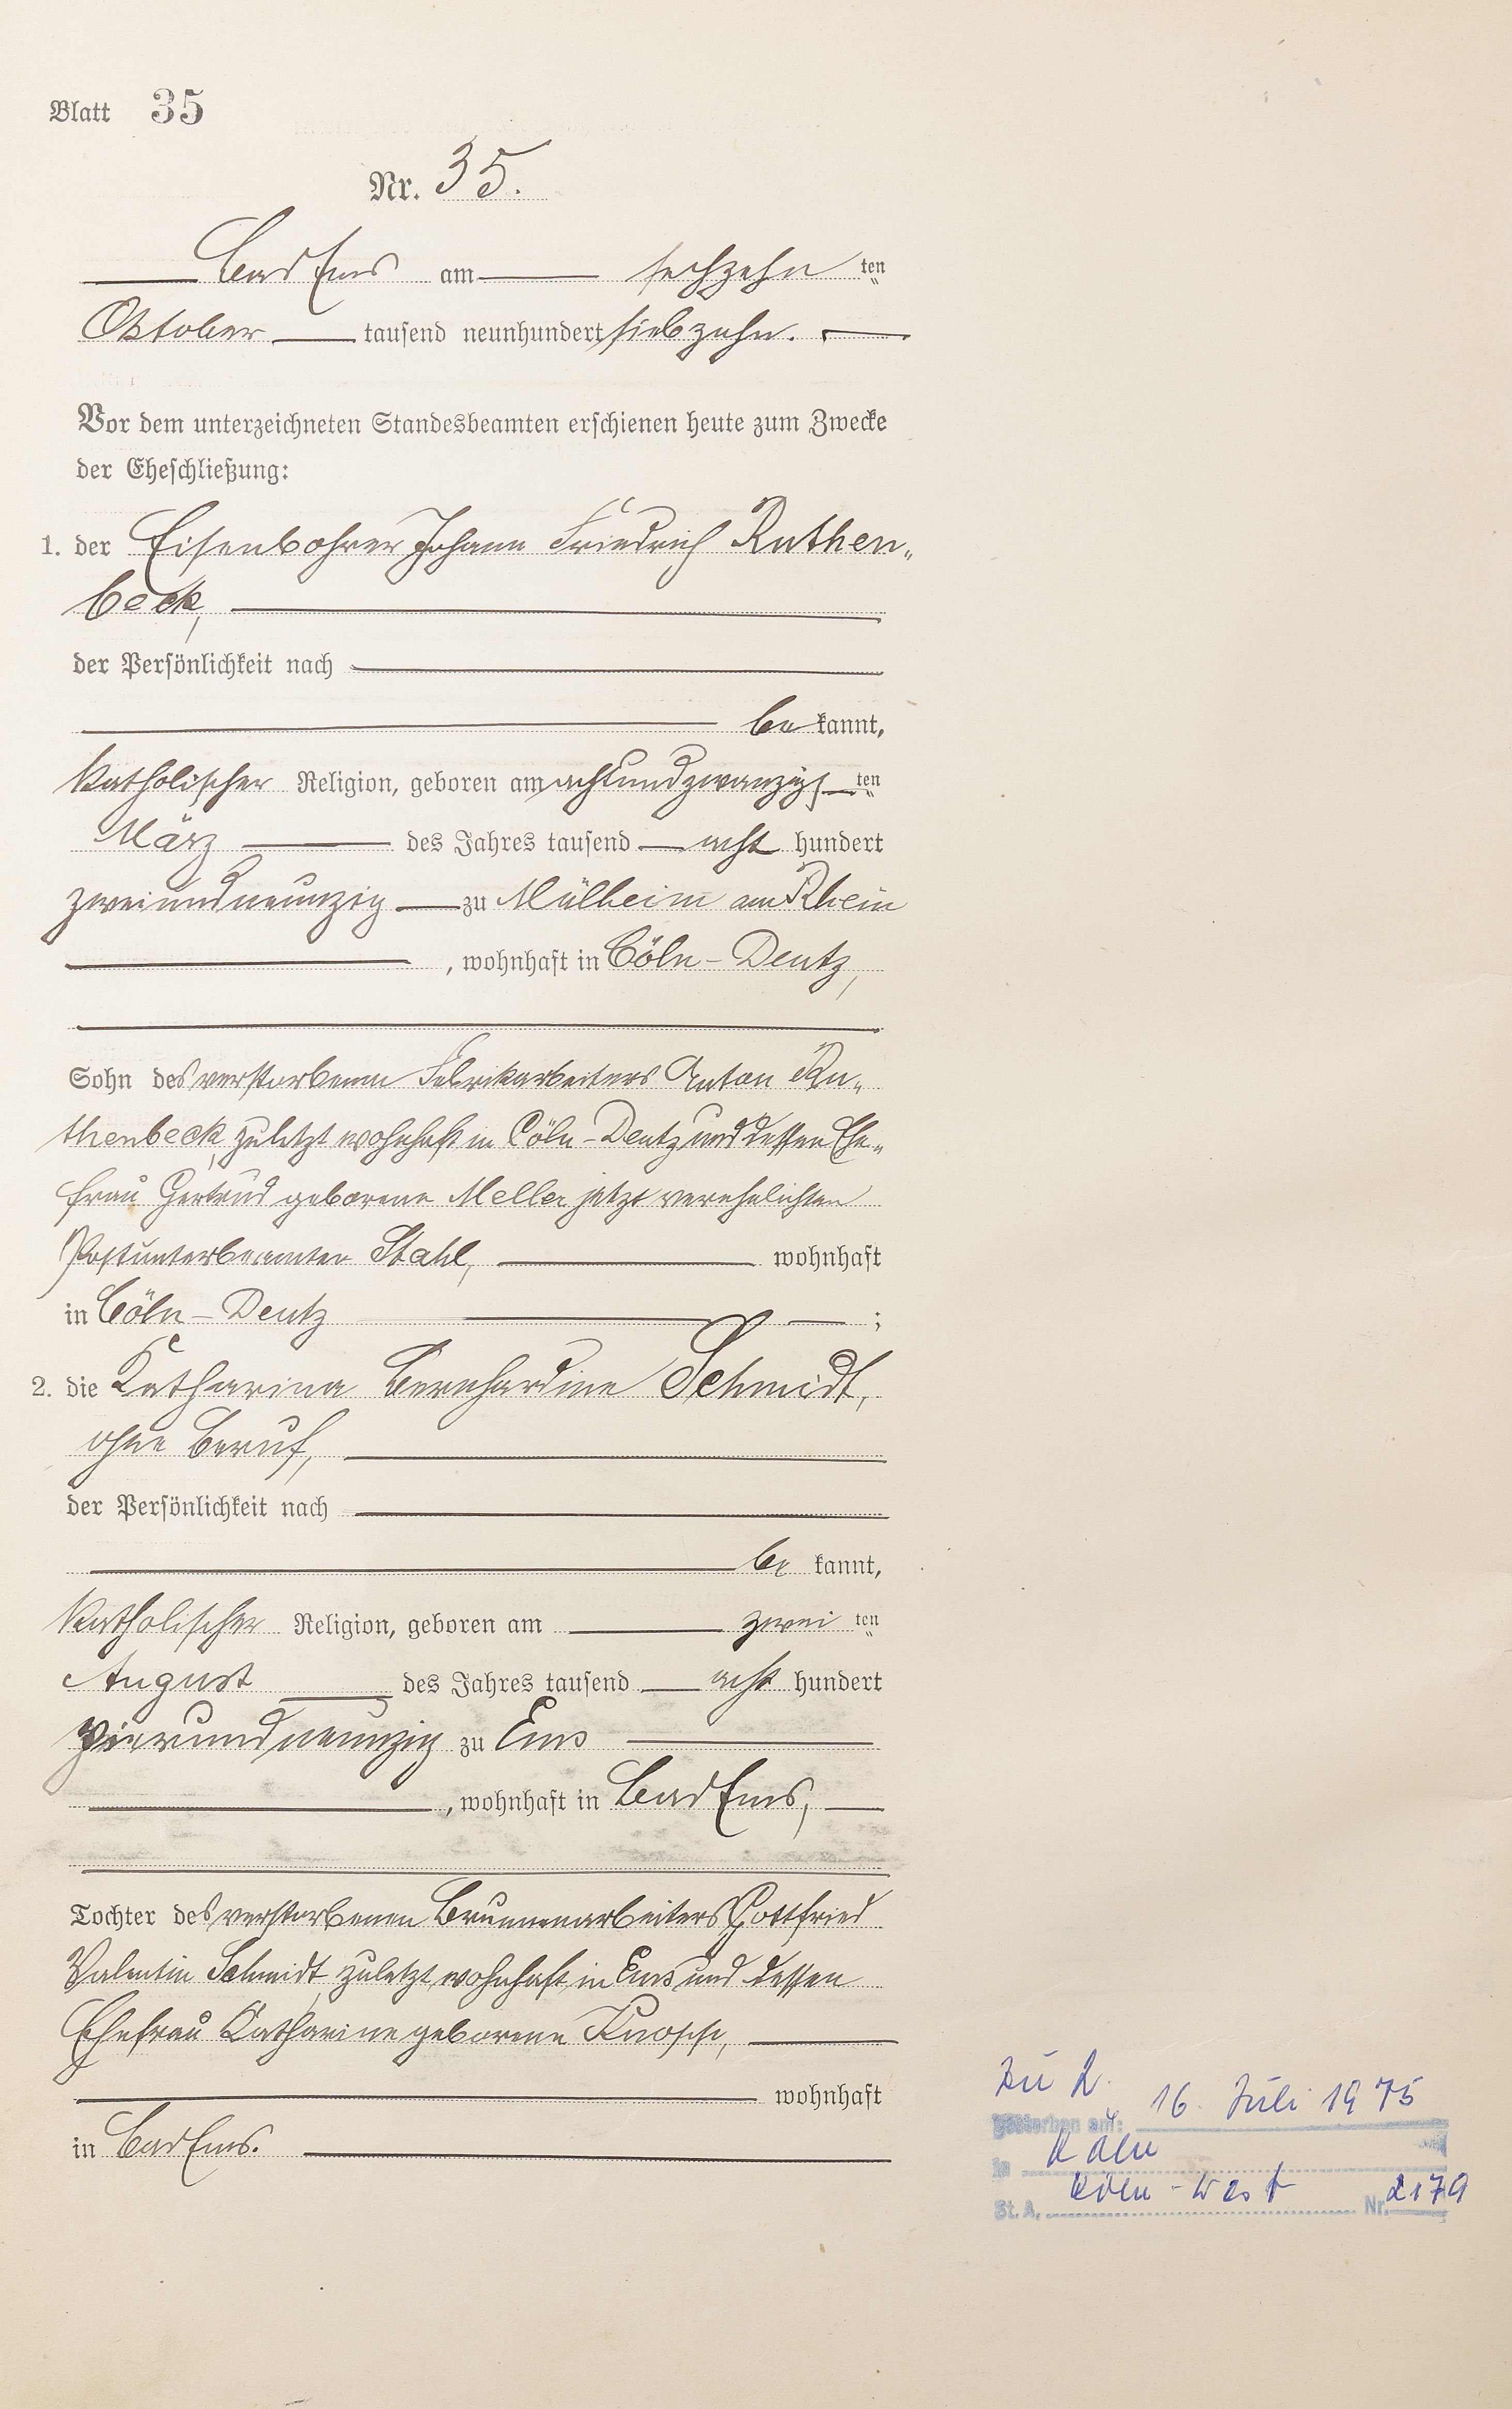 Blatt 35
Nr. 35.
Bad Ems am sechzehn ten
Oktober tausend neunhundert siebzehn.
Vor dem unterzeichneten Standesbeamten erschienen heute zum Zwecke
der Eheschließung:
1. der Eisenbohrer Johann Friedrich Ruthen„
beck,
der Persönlichkeit nach
be kannt,
katholischer Religion, geboren am achtundzwanzigs ten
März des Jahres tausend acht hundert
zweiundneunzig zu Mülheim am Rhein
, wohnhaft in Cöln-Deutz,
Sohn des verstorbenen Fabrikarbeiters Anton Ru„
thenbeck, zuletzt wohnhaft in Cöln-Deutz und dessen Ehe„
frau Gertrud geborene Meller jetzt verehelichten
Postunterbeamten Stahl, wohnhaft
in Cöln-Deutz ;
2. die Katharina Bernhardine Schmidt,
ohne Beruf,
der Persönlichkeit nach
be kannt,
katholischer Religion, geboren am zwei ten
August des Jahres tausend acht hundert
vierundneunzig zu Ems
, wohnhaft in Bad Ems,
Tochter des verstorbenen Brunnenarbeiters Gottfried
Valentin Schmidt, zuletzt wohnhaft in Ems und dessen
Ehefrau Katharine geborene Knopp,
wohnhaft
in Bad Ems.
Zu 2.
Gestorben am: 16. Juli 1975
in Köln
St. A. Köln-West Nr. 2179